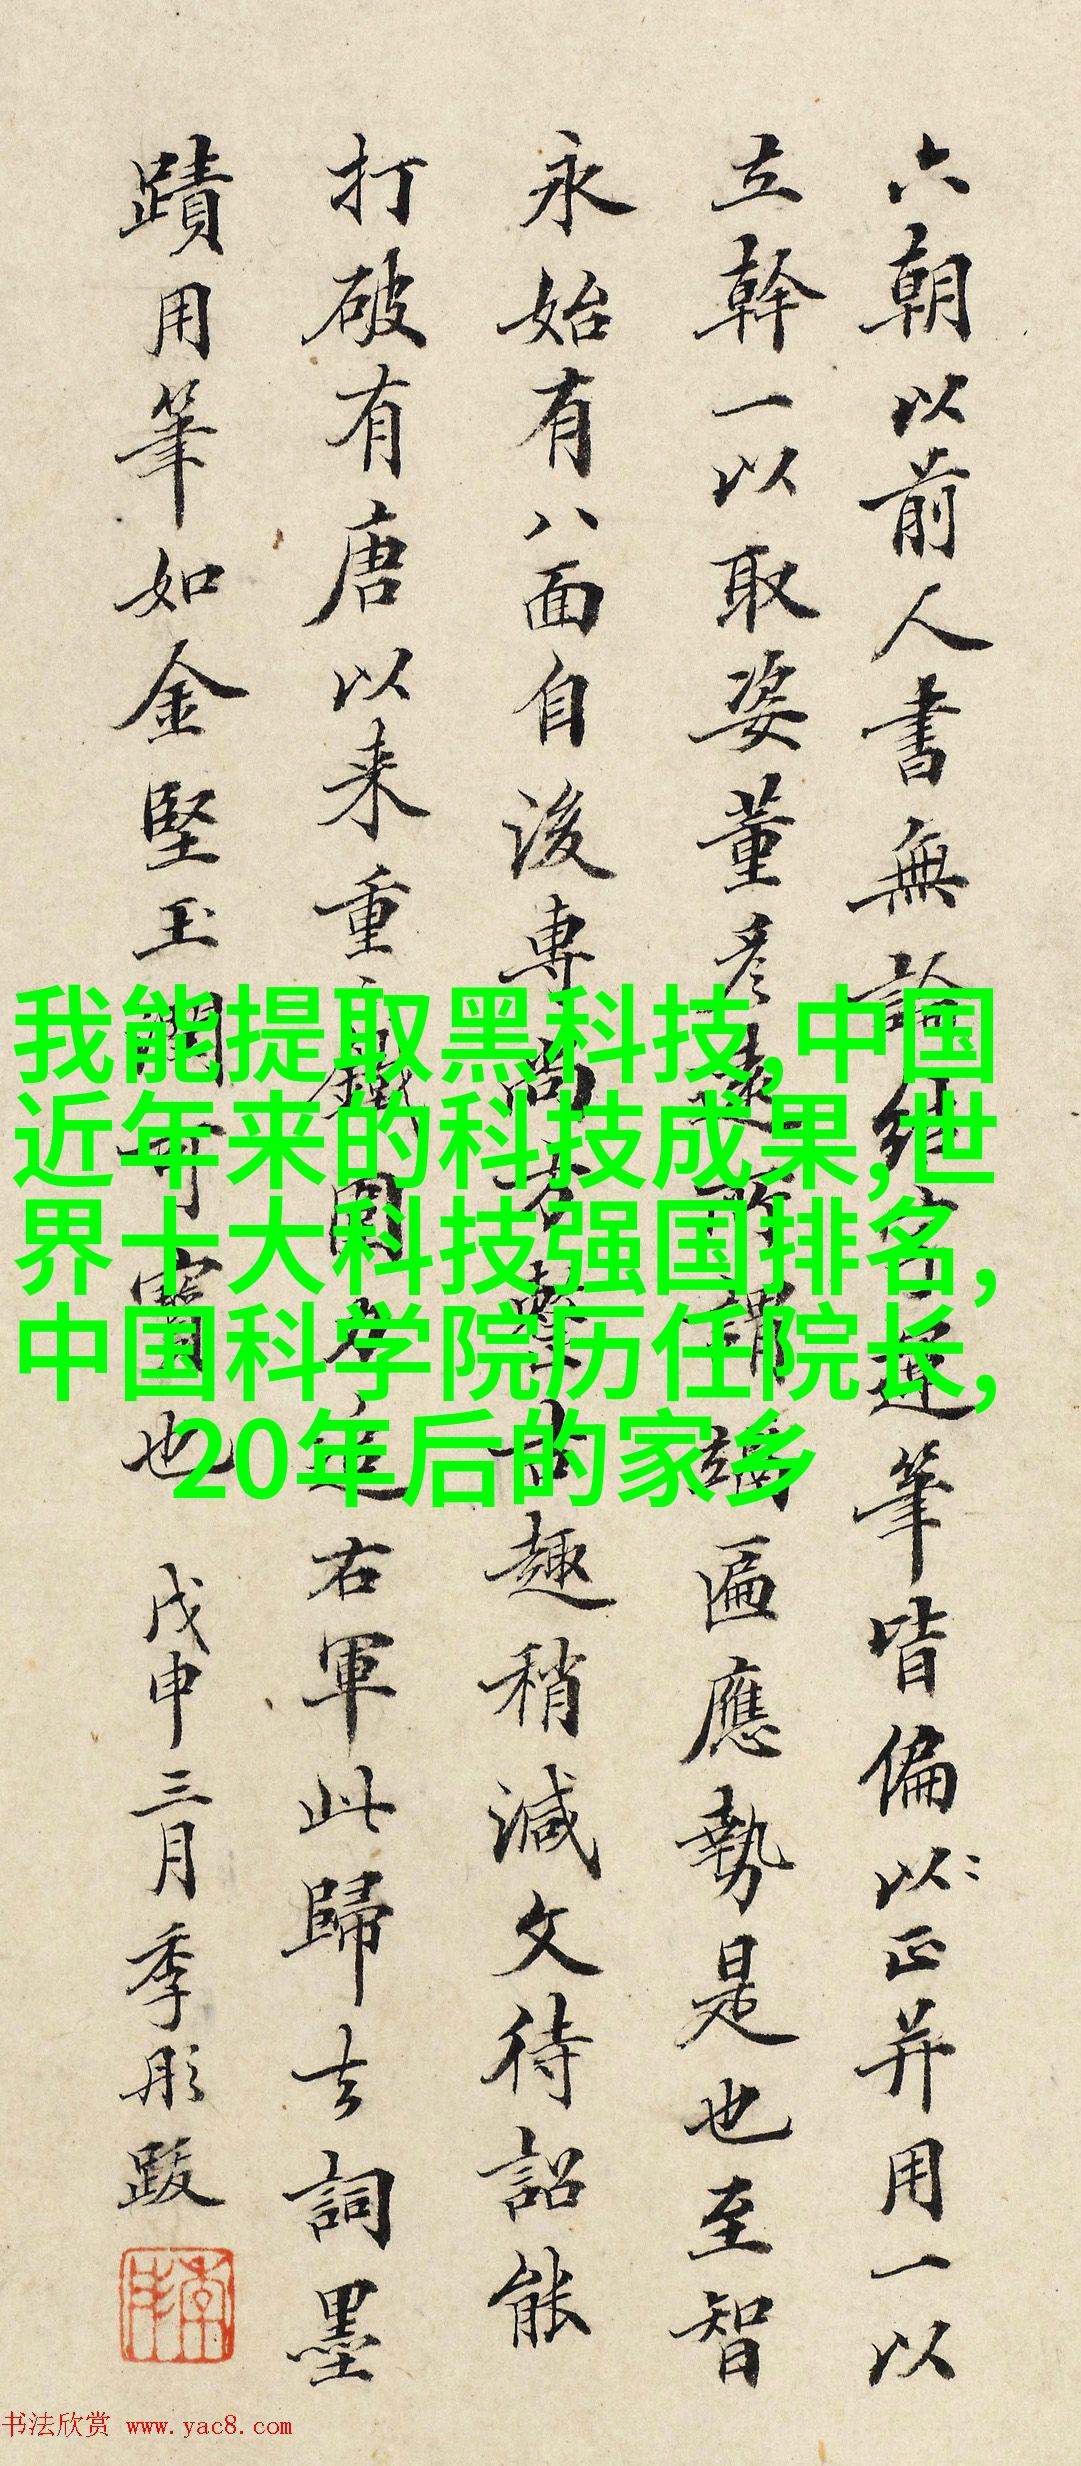 六朝以前人書無論結字運筆皆偏以正并用一以
立幹一以取姿董彦遠所謂端匾應勢是也至智
永始有八面自後專尚去塾古趣稍減文待詔能
打破有唐以来重鐵圍力追右軍此歸去詞墨
蹟用筆如金堅玉潤可寳也 戊申三月季彤跋
我能提取黑科技,中国
近年来的科技成果,世
界十大科技强国排名,
中国科学院历任院长,
20年后的家乡
书法欣赏 www.yac8.com